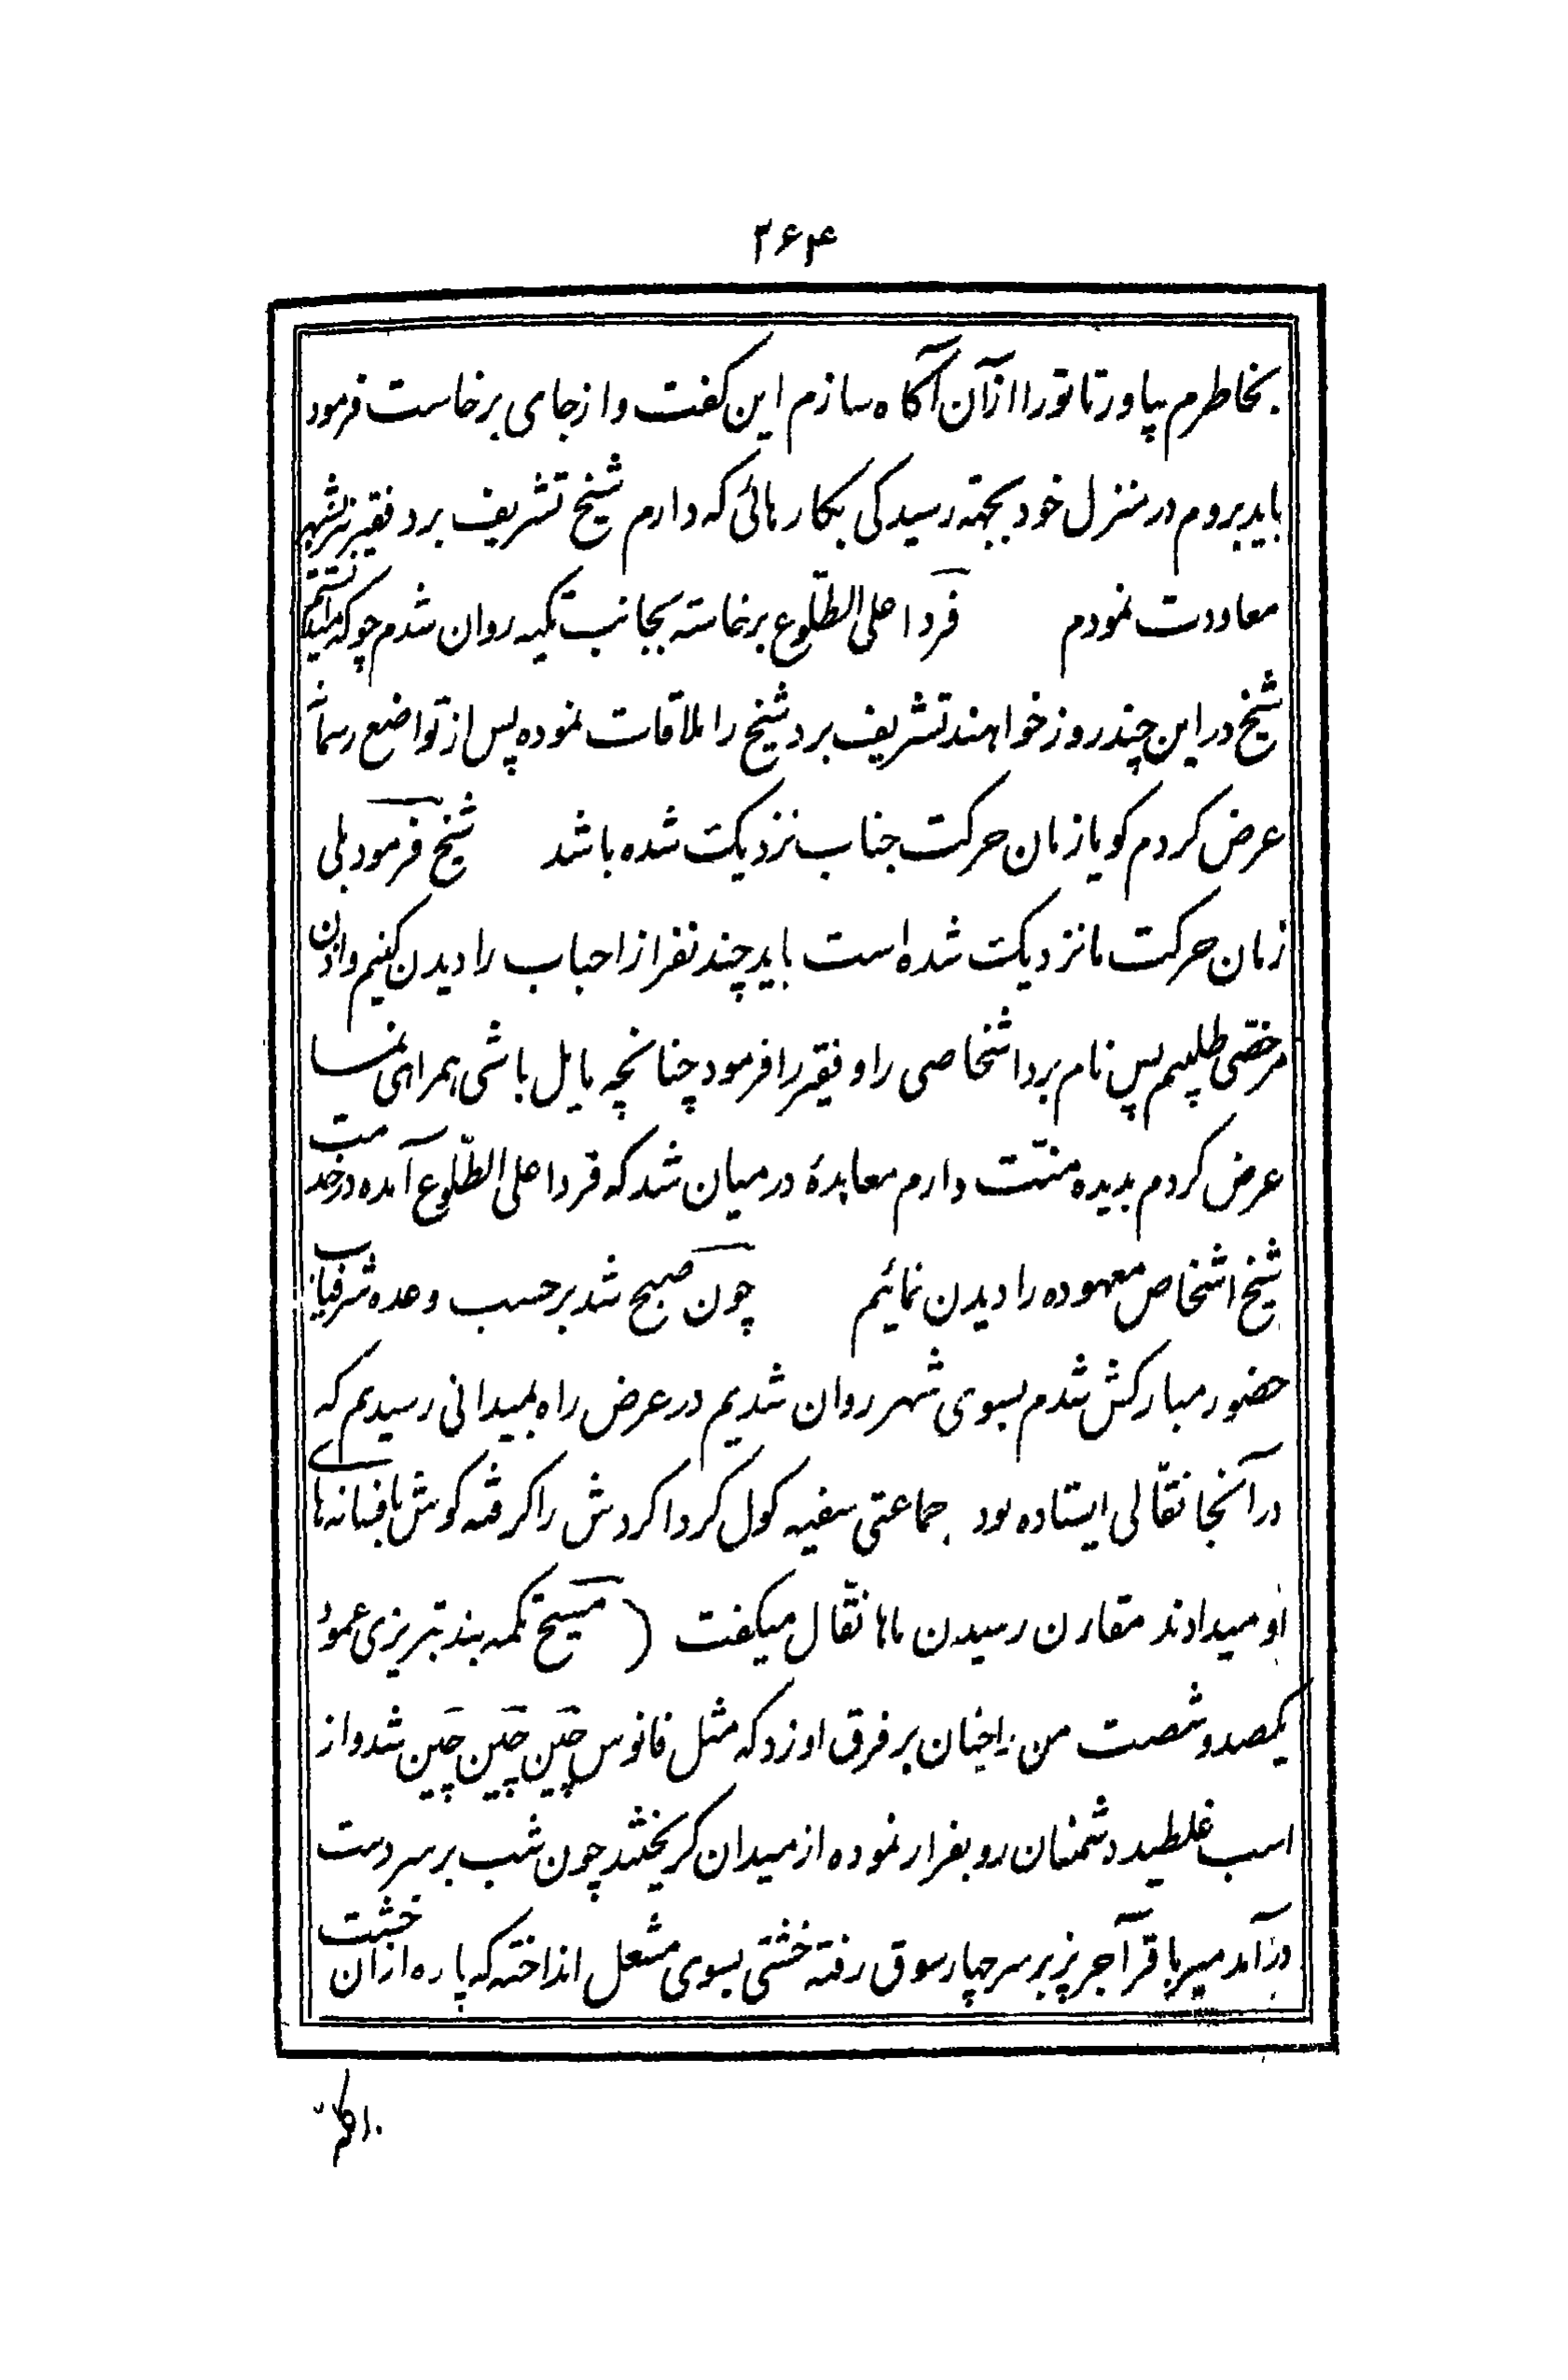 ۲۶۴
بخاطرم بیاور تا تو را از آن آگاه سازم این کفت و از جای برخاست فرمود
باید بروم در منزل خود بجهته رسیدکی بکارهائی که دارم شیخ تشریف برد فقیر نیز بشهر
معاودت نمودم فردا علی الطّلوع برخاسته بجانب تکیه روان شدم چو که میدانستم
شیخ در این چند روز خواهند تشریف برد شیخ را ملاقات نموده پس از تواضع رسماً
عرض کردم کویا زمان حرکت جناب نزدیکت شده باشد شیخ فرمود بلی
زمان حرکت ما نزدیکت شده است باید چند نفر از احباب را دیدن کنیم و اذن
مرخصّی طلبیم پس نام برد اشخاصی را و فقیر را فرمود چنانچه مایل باشی همراهی نما
عرض کردم بدیده منتّت دارم معاهدهٔ در میان شد که فردا علی الطّلوع آمده در خدمت
شیخ اشخاص معهوده را دیدن نمائیم چون صبح شد بر حسب وعده شرفیاب
حضور مبارکش شدم بسوی شهر روان شدیم در عرض راه بمیدانی رسیدیم که
در آنجا نقّالی ایستاده بود جماعتی سفیه کول کرداکردش را کرفته کوش بافسانه های
او میدادند مقارن رسیدن ماها نقّال میکفت ( مسیح تکمه بند تبریزی عمود
یکصد و شصت من را چنان بر فرق او زد که مثل فانوس چین چین چین شد و از
اسب غلطید دشمنان رو بفرار نموده از میدان کریختند چون شب بر سر دست
درآمد میر باقر آجر پز بر سر چهار سوق رفته خشتی بسوی مشعل انداخته که پاره از ان خشت